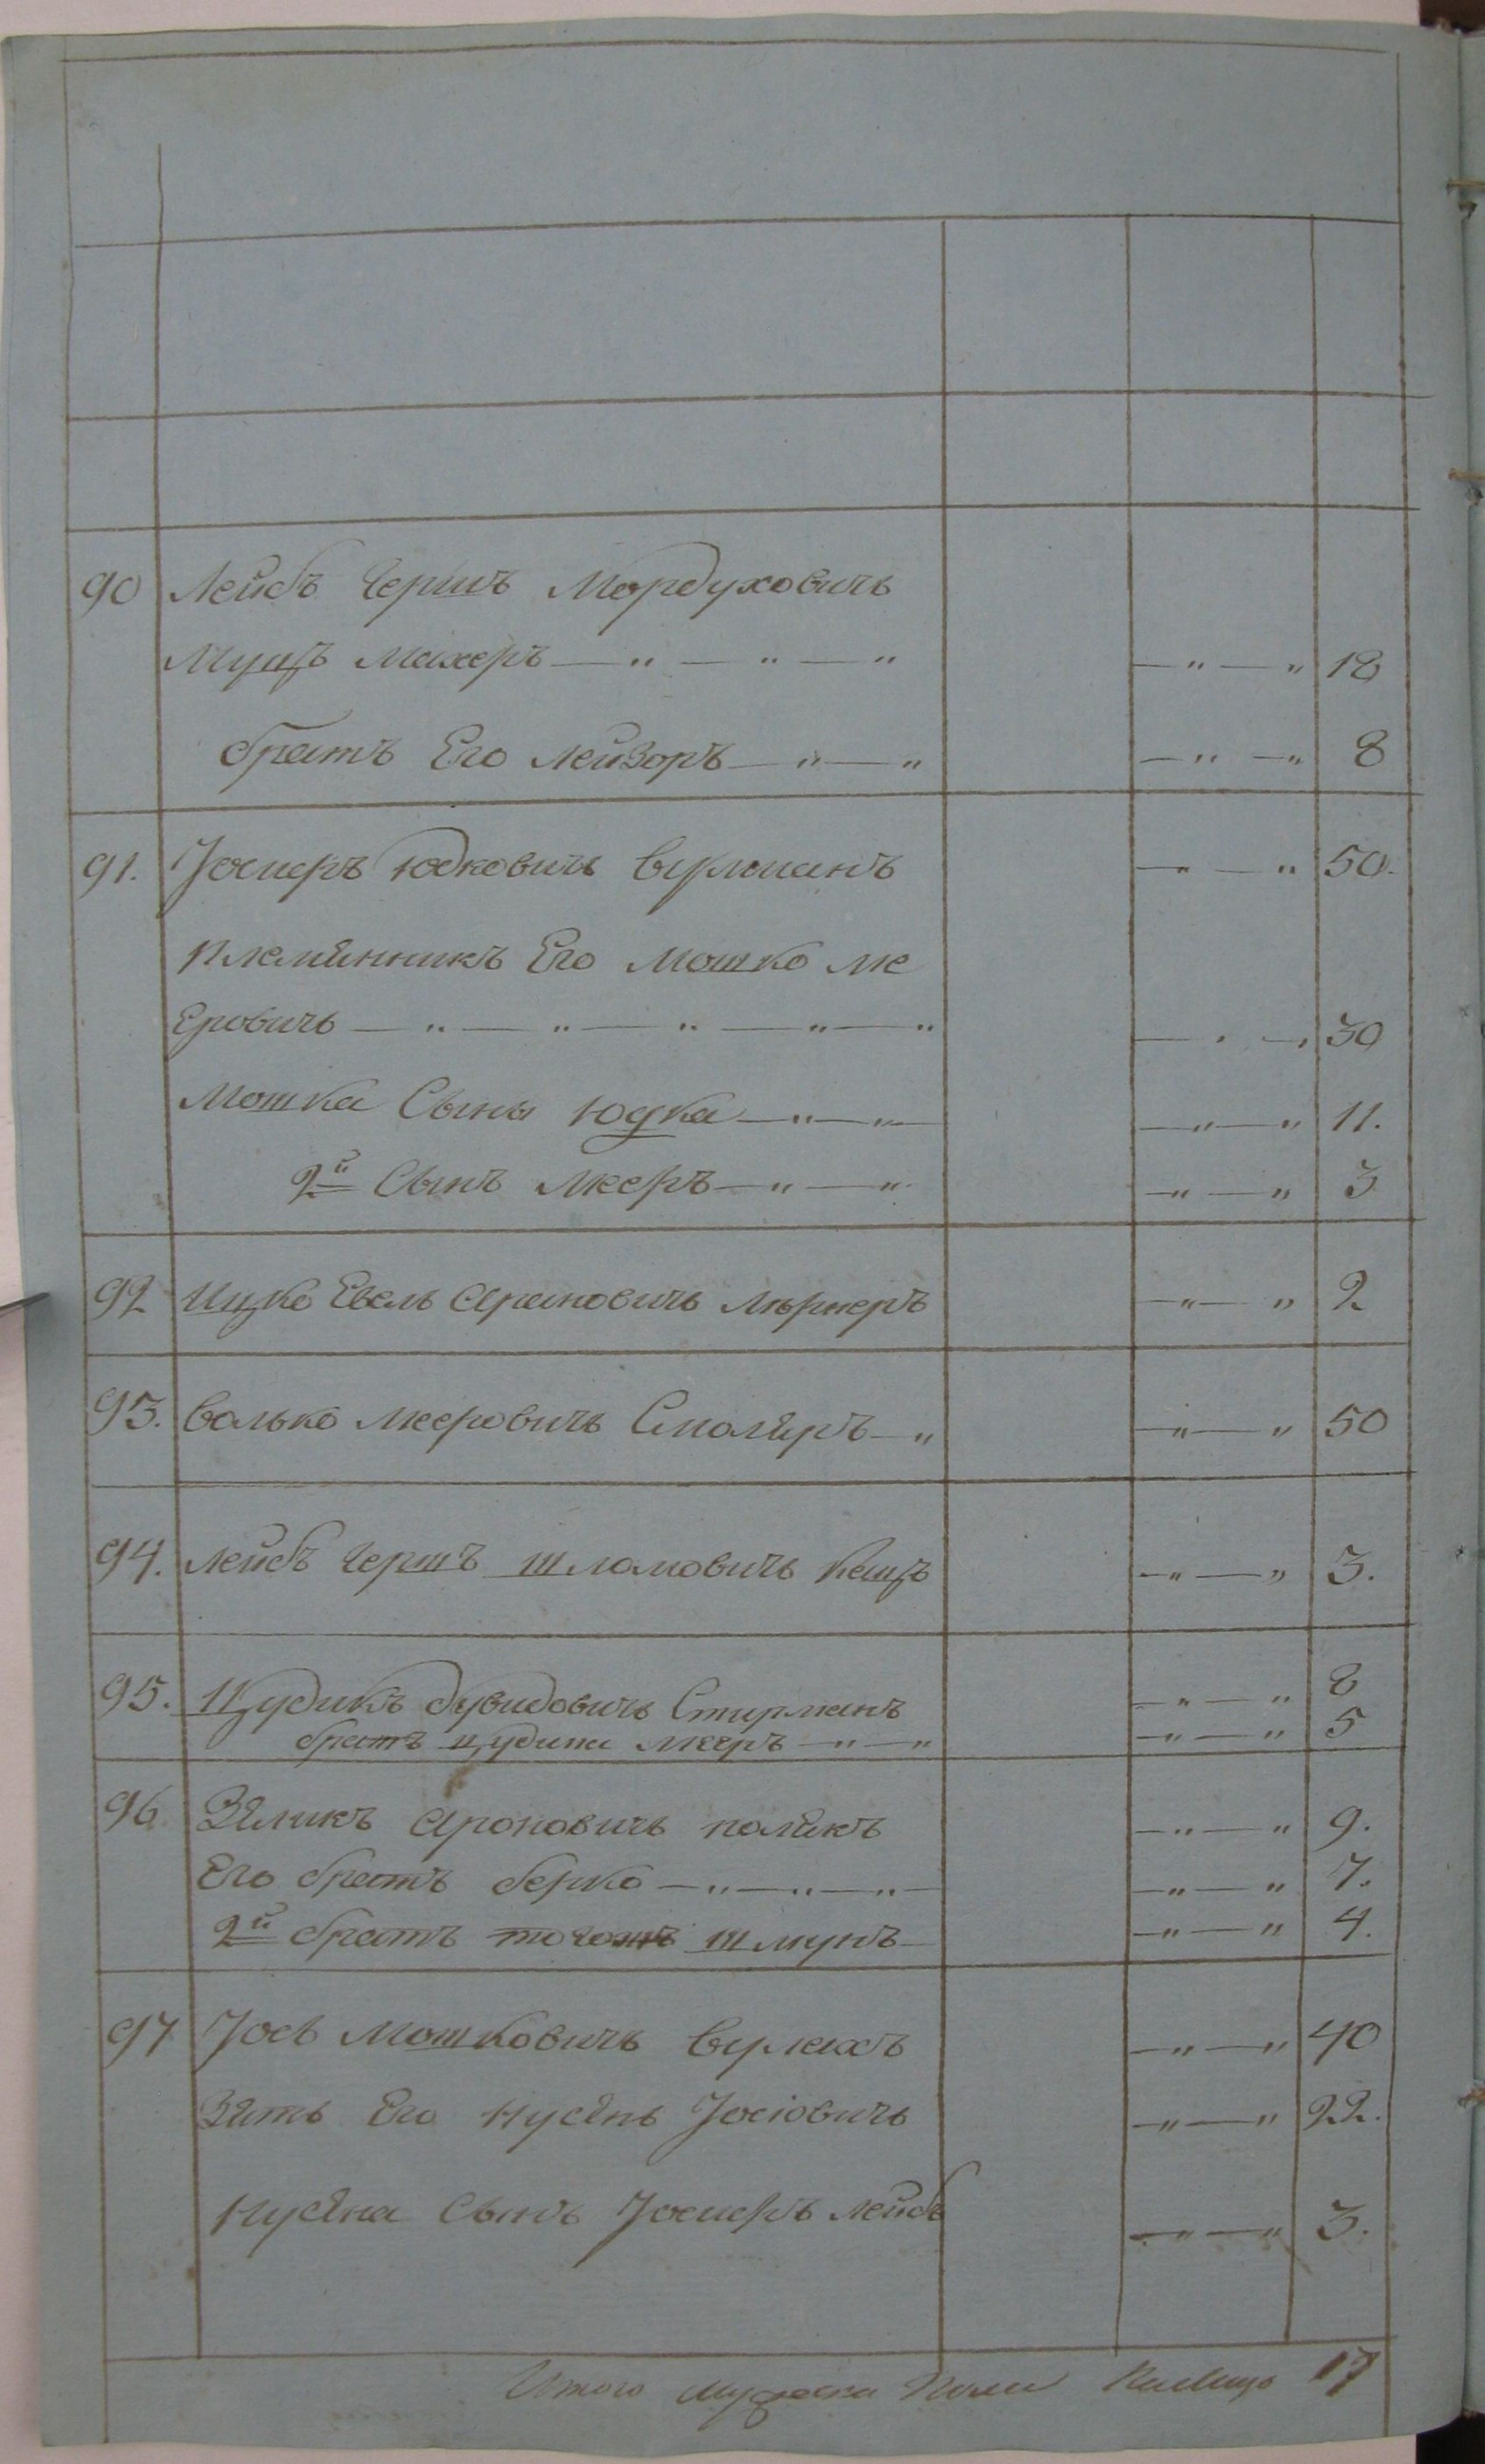 90 Лейбъ Гершъ Мордуховичь
Мущъ Махеръ — " — " — " — " — " 18
братъ Его Лейзоръ — " — " — " — " 8
91. Іосиеръ Юдковичь Вурманъ — " — " 50.
Племянникъ Его Мошко Ме
Еровичь — " — " — " — " — " — " — " 30
Мошка Сыны Юдка — " — " — " — " 11.
2й Сынъ Мееръ — " — " — " — " 3
92 Ицко Евель Ароновичь Лернеръ — " — " 2
93. Волько Мееровичь Смоляръ — " — " — " 50
94. Лейбъ Гершъ Шломовичь Кацъ — " — " 3.
95. Цудикъ Дувидовичь Стирманъ — " — " 8
братъ Цудика Мееръ — " — " — " — " 5
96. Зяликъ Ароновичь Полякъ — " — " 9.
Его братъ Берко — " — " — " — " — " 7.
2й братъ тогожъ Шмунъ — — " — " 4.
97 Іось Мошковичь Вулахъ — " — " 40
Зять Его Нусянь Іосіовичь — " — " 22.
Нусяна Сынъ Іосиеръ Лейбъ — " — " 3.
Итого Мужеска Пола 17